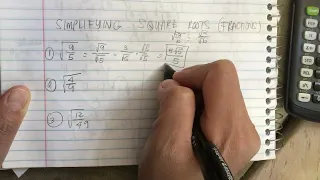 SIMPLIFYING SQUARE ROOTS (FRACTIONS)
① √(9/5) = √9/√5 = 3/√5 · √5/√5 = 3√5/5
② √(4/9)
③ √(12/49)